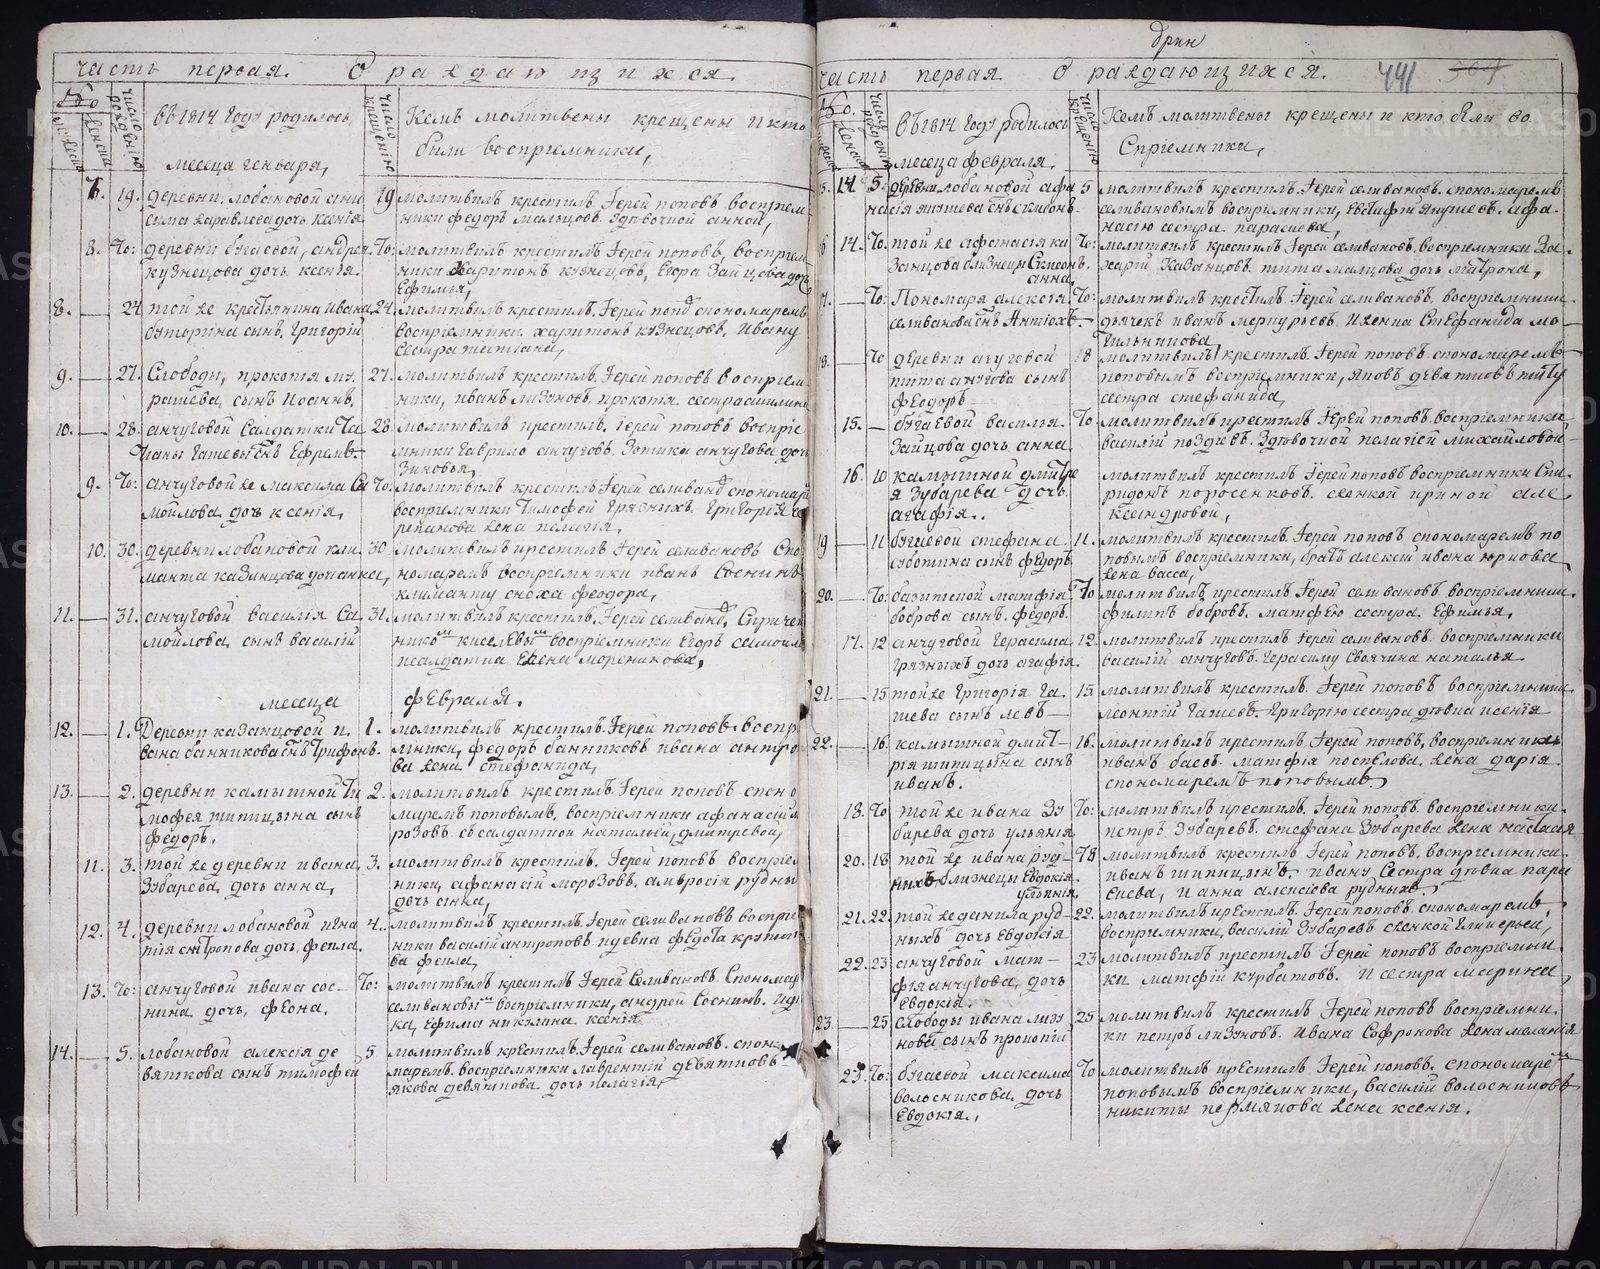 часть первая. О раждающихся.
№
мужеска
женска
число рожденію
въ 1814 году родилось,
месеца генваря,
число крещенію
Кемъ молитвены крещены и кто
были восприемники,
7. 19. деревни лобановой ани
сима журавлева дочь ксенія
19 молитвилъ крестилъ Іерей поповъ восприем
ники федоръ мальцовъ. здѣвочкой анной,
8. То: деревни бугаевой, андрея
кузнецова дочь ксенія.
То: молитвилъ крестилъ Іерей поповъ, восприем
ники Харитонъ кузнецовъ, Егора Зайцова дочь
Ефимья,
8. — 24 той же крестьянина ивана
буторина сынъ Григорій
24. молитвилъ крестилъ Іерей попо спономаремъ
восприемники харитонъ кузнецовъ. Ивану
сестра татіана,
9. — 27. Слободы, прокопія му
рашева, сынъ Иоаннъ.
27. молитвилъ крестилъ. Іерей поповъ восприем
ники, иванъ лизуновъ, прокопія сестра
10. — 28. анчуговой Салдатки Та
тіаны Гашевы снъ Ефремъ.
28 молитвилъ крестилъ. Іерей поповъ восприе
мники гаврило анчуговъ. Зотика анчугова дочь
Зиновья,
9. То: анчуговой же максима Са
мойлова дочь ксенія,
То: молитвилъ крестилъ Іерей селивано спономаре
восприемники Тимофей Грязныхъ. Григорія че
репанова жена пелагія,
10. 30. деревни лобановой кли
манта казанцова дочь анна,
30 молитвилъ крестилъ Іерей селивановъ Спо
номаремъ восприемники иванъ Соснинъ
климанту сноха феодора,
11. — 31. анчуговой василія Са
мойлова, сынъ василій
31. молитвилъ крестилъ. Іерей селивано, Спричет
восприемники Егоръ самойло
исалдатка Елена
месеца февраля.
12. — 1. Деревни казанцовой и
вана банникова снъ Трифонъ.
1. молитвилъ крестилъ. Іерей поповъ воспри
мники, федоръ банниковъ ивана антро
ва жена стефанида,
13. — 2. деревни камышной Ти
мофея шипицына сынъ
федоръ.
2. молитвилъ крестилъ Іерей поповъ споно
маремъ поповымъ, восприемники афанасій м
розовъ ссалдаткой наталіей, дмитревой,
11. 3. той же деревни ивана
Зубарева, дочь анна,
3. молитвилъ крестилъ. Іерей поповъ восприе
ники, афанасій морозовъ. амвросія рудны
дочь анна,
12. 4. деревни лобановой игна
тія антропова дочь, фекла.
4. молитвилъ крестилъ. Іерей селивановъ восприе
ники василій антроповъ идевка федота
ва фекла,
13. То: анчуговой ивана сос-
нина дочь, феона.
То: молитвилъ крестилъ Іерей Селивановъ. Спономар
селивановы восприемники, андрей Соснинъ. идѣ
ка, Ефима никулина ксенія
14. — 5. лобановой алексія де
вяткова сынъ тимофей
5 молитвилъ крестилъ. Іерей селивановъ. споно
маремъ. восприемники лаврентій девятковъ
якова девяткова дочь пелагія,
часть первая О раждающихся. 441
№
женска
число рожденію
въ 1814 году родилось
месеца февраля,
число крещенію
Кемъ молитвены крещены и кто были во
сприемники,
5. 14. 5. деревни лобановой афа
насія якушева снъ симеонъ
5 молитвилъ крестилъ. Іерей селивановъ. спономаремъ
селивановымъ восприемники, Евстафій якушевъ. афа-
насію сестра парасиева,
6 14. То. той же афанасія ка
занцова близнецы Симеонъ.
анна,
То: молитвилъ крестилъ Іерей селивановъ. восприемники За-
харій Казанцовъ. тита малцова дочь матрона,
7. — То: Пономаря алексія
селиванова снъ Антіохъ
То: молитвилъ крестилъ. Іерей селивановъ. восприемники
дьячекъ иванъ меркурьевъ. Ижена Стефанида мо-
гильникова
8. — То деревни анчуговой
тита анчугова сынъ
феодоръ
18 молитвилъ крестилъ. Іерей поповъ. спономаремъ
поповымъ восприемники, яковъ девятковъ титу
сестра стефанида,
15. — бугаевой василья
Зайцова дочь анна.
То молитвилъ крестилъ Іерей поповъ. восприемники,
василій поздевъ. Здѣвочкой пелагіей михайловой
16. 10 камышной дмитре
я Зубарева дочь
агафія..
молитвилъ крестилъ Іерей поповъ восприемники Спи
ридонъ поросенковъ. сженкой ириной але
ксандровой,
19 — 11 бугаевой стефана
суботина сынъ федоръ.
11. молитвилъ крестилъ. Іерей поповъ спономаремъ по
повымъ восприемники, братъ алексій ивана юркова
жена васса,
20. — То: базитской матфія
боброва сынъ. федоръ.
То молитвилъ крестилъ Іерей селивановъ. восприемники
филипъ бобровъ. матфею сестра. Ефимья.
17. 12 анчуговой Герасима
грязныхъ дочь агафія.
12. молитвилъ крестилъ Іерей селивановъ. восприемники
василій анчуговъ. Герасиму своячина наталья
21. — 15 той же Григорія Га-
шева сынъ левъ
15 молитвилъ крестилъ. Іерей поповъ восприемники
леонтій гашевъ. Григорію сестра девка ксенія
22. — 16. камышной дмит-
рія шипицына сынъ
иванъ.
16. молитвилъ крестилъ. Іерей поповъ, восприемники
иванъ баевъ. матфія поспелова. жена дарія
спономаремъ поповымъ
18. То той же ивана Зу
барева дочь ульянія
То: молитвилъ крестилъ. Іерей поповъ. восприемники.
петръ Зубаревъ. стефана Зубарева жена настасія
20. 18 той же ивана руд-
ныхъ близнецы Евдокія.
ульянія,
18 молитвилъ крестилъ Іерей поповъ. восприемники.
иванъ шипицынъ. ивану Сестра девка пара
скева, и анна алексіева рудныхъ.
21. 22. той же данила руд-
ныхъ дочь Евдокія
22. молитвилъ крестилъ. Іерей поповъ. спономаремъ,
восприемники, василій Зубаревъ сженкой гликерьей,
22. 23 анчуговой мат-
фія анчугова, дочь
Евдокія.
23 молитвилъ крестилъ Іерей поповъ восприемни
ки матфій курбатовъ. и сестра марина,
23. — 25 слободы ивана лизу
новы сынъ прокопій
25 молитвилъ крестилъ Іерей поповъ восприемни.
ки петръ лизуновъ. ивана Софронова жена меланія
23. То: бугаевой максима
волосникова дочь
Евдокія.,
То молитвилъ крестилъ Іерей поповъ. спономаре
поповымъ восприемники, василій волосниковъ
никиты пермякова жена ксенія.
METRIKI.GASO-URAL.RU